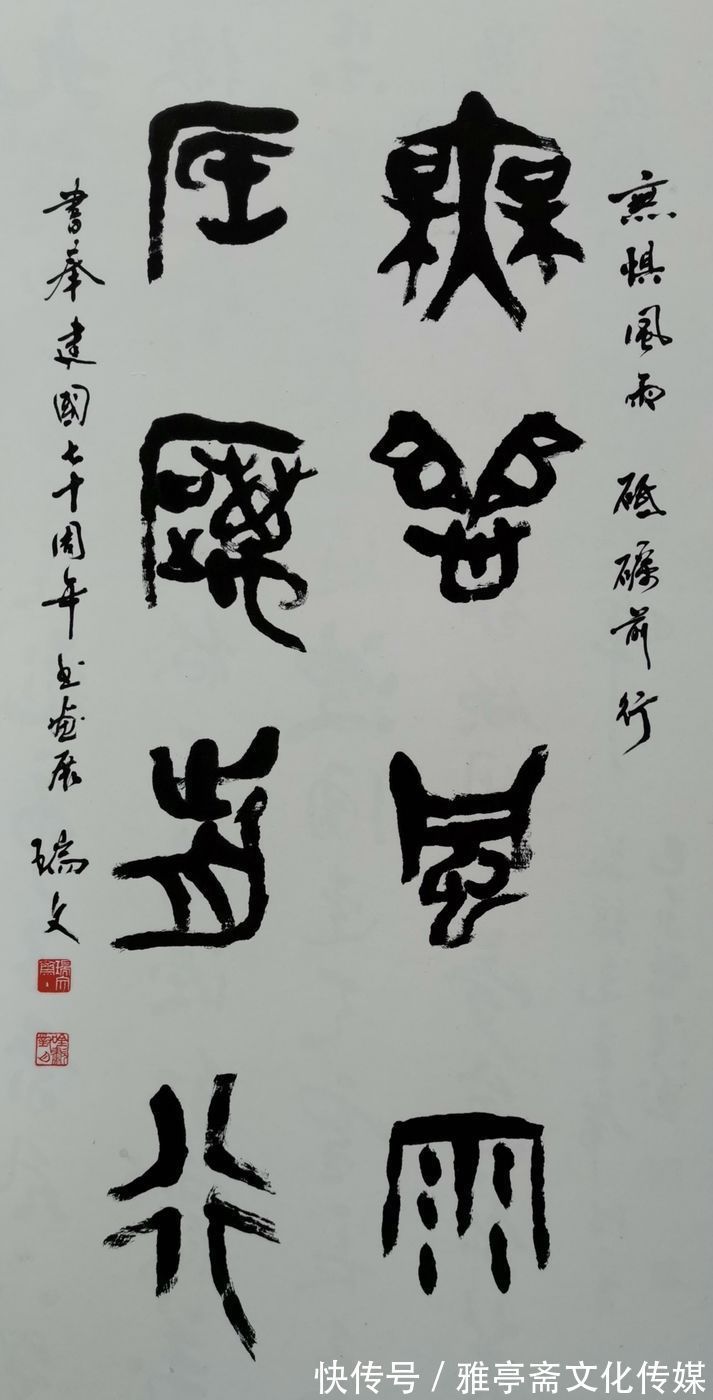 無惧風雨 砥礪前行
無懼風雨
厎厲前行
書奉建國七十周年书畫展 瑞文
快传号 / 雅亭斋文化传媒